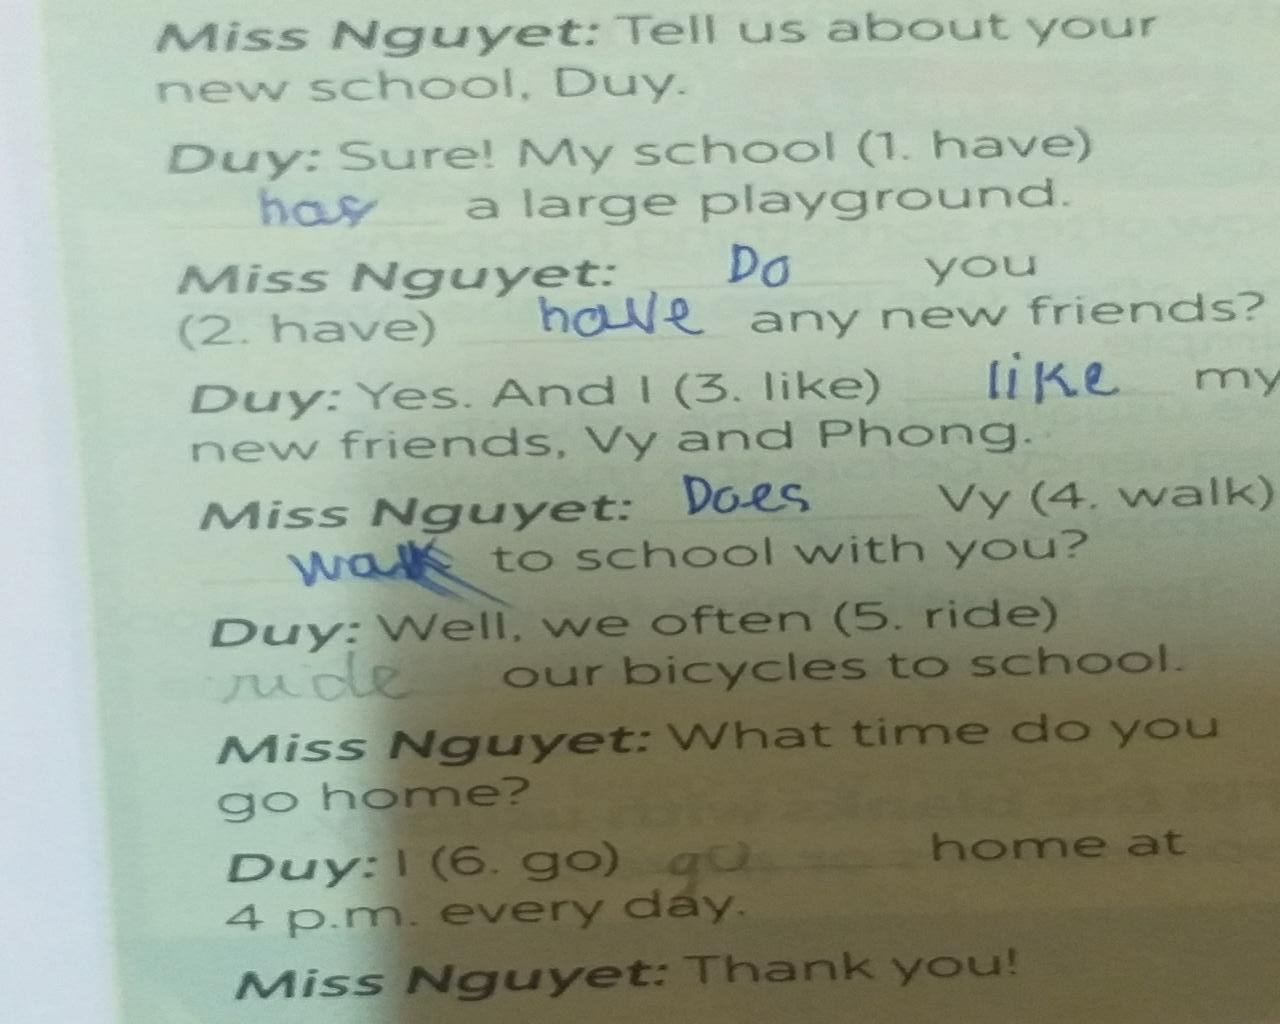 Miss Nguyet: Tell us about your
new school, Duy.
Duy: Sure! My school (1. have)
has a large playground.
Miss Nguyet: Do you
(2. have) have any new friends?
Duy: Yes. And I (3. like) like my
new friends, Vy and Phong.
Miss Nguyet: Does Vy (4. walk)
walk to school with you?
Duy: Well, we often (5. ride)
ride our bicycles to school.
Miss Nguyet: What time do you
go home?
Duy: I (6. go) go home at
4 p.m. every day.
Miss Nguyet: Thank you!